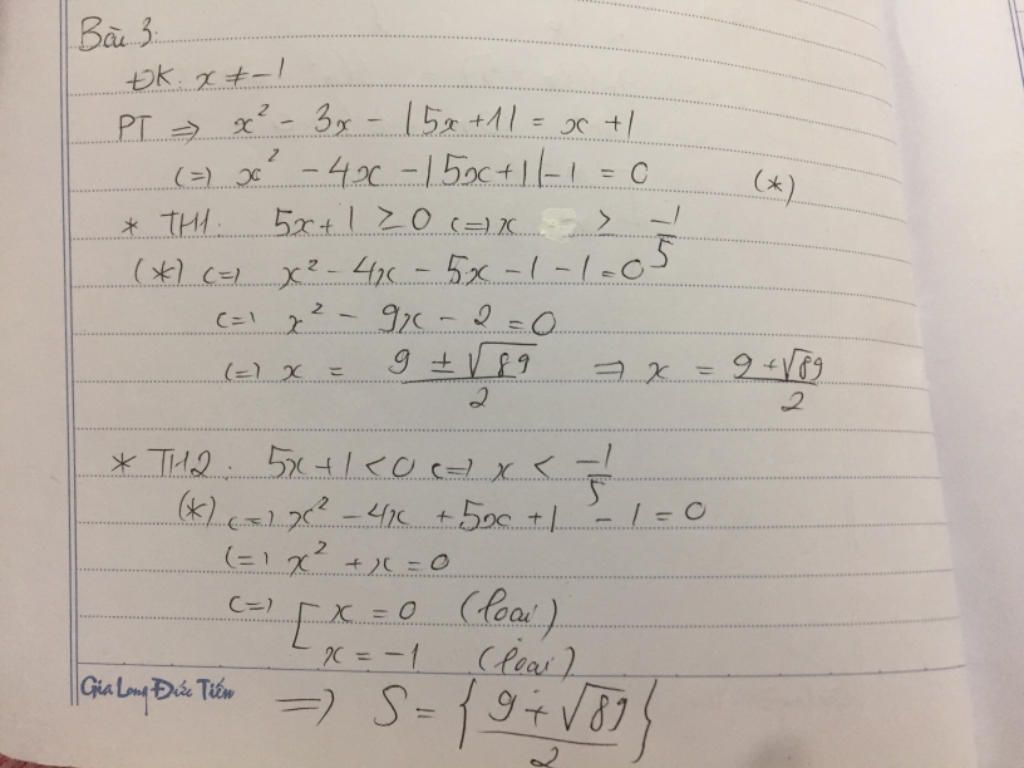 Bài 3:
ĐK. x ≠ -1
PT => x² - 3x - |5x+1| = x +1
(=) x² - 4x - |5x+1| - 1 = 0 (*)
* TH1. 5x+1 ≥ 0 (=) x ≥ -1/5
(*) (=) x² - 4x - 5x - 1 - 1 = 0
(=) x² - 9x - 2 = 0
(=) x = (9 ± √89)/2 => x = (9 + √89)/2
* TH2. 5x+1 < 0 (=) x < -1/5
(*) (=) x² - 4x + 5x + 1 - 1 = 0
(=) x² + x = 0
(=) [ x = 0 (loại)
x = -1 (loại)
Gia Long Đức Tiến
=> S = { (9 + √89)/2 }